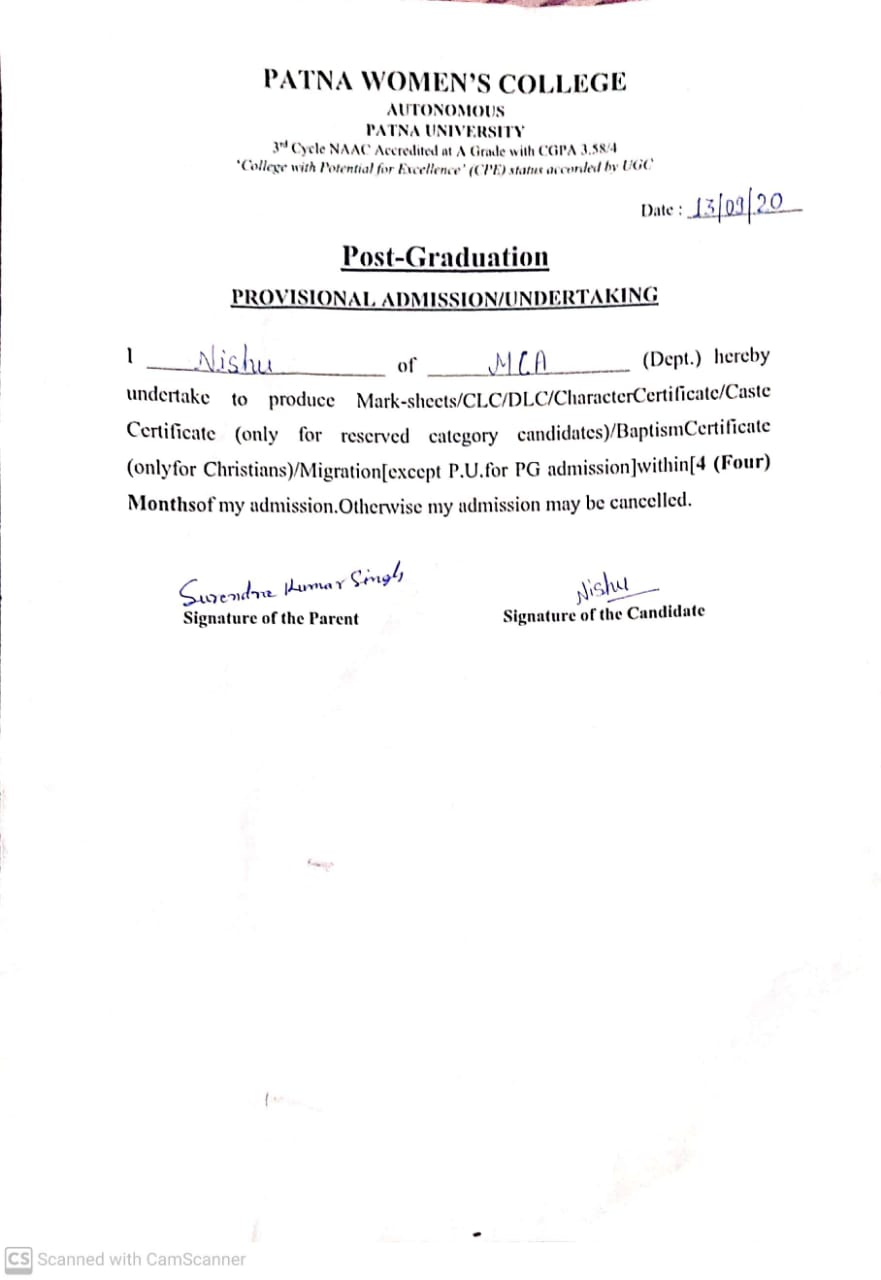 PATNA WOMEN'S COLLEGE
AUTONOMOUS
PATNA UNIVERSITY
3rd Cycle NAAC Accredited at A Grade with CGPA 3.58/4
'College with Potential for Excellence' (CPE) status accorded by UGC
Date : 13/09/20
Post-Graduation
PROVISIONAL ADMISSION/UNDERTAKING
I Nishu of MCA (Dept.) hereby
undertake to produce Mark-sheets/CLC/DLC/CharacterCertificate/Caste
Certificate (only for reserved category candidates)/BaptismCertificate
(onlyfor Christians)/Migration[except P.U.for PG admission]within[4 (Four)
Monthsof my admission.Otherwise my admission may be cancelled.
Surendra Kumar Singh Nishu
Signature of the Parent Signature of the Candidate
CS Scanned with CamScanner